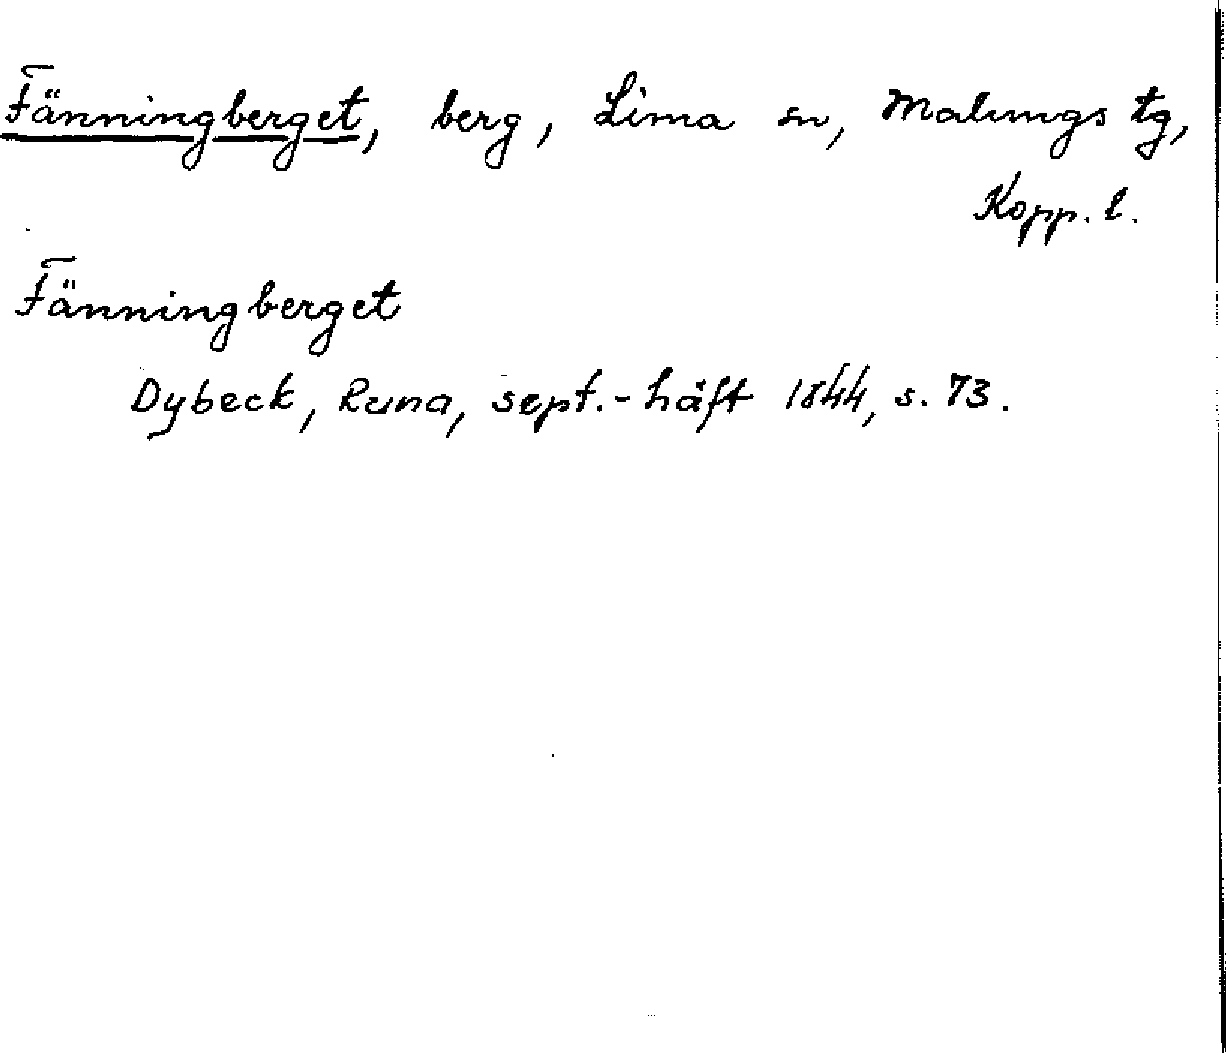 Fänningberget, berg, Lima sn, Malungs tg,
Kopp. l.
Fänningberget
Dybeck, Runa, sept.-häft 1844, s. 73.